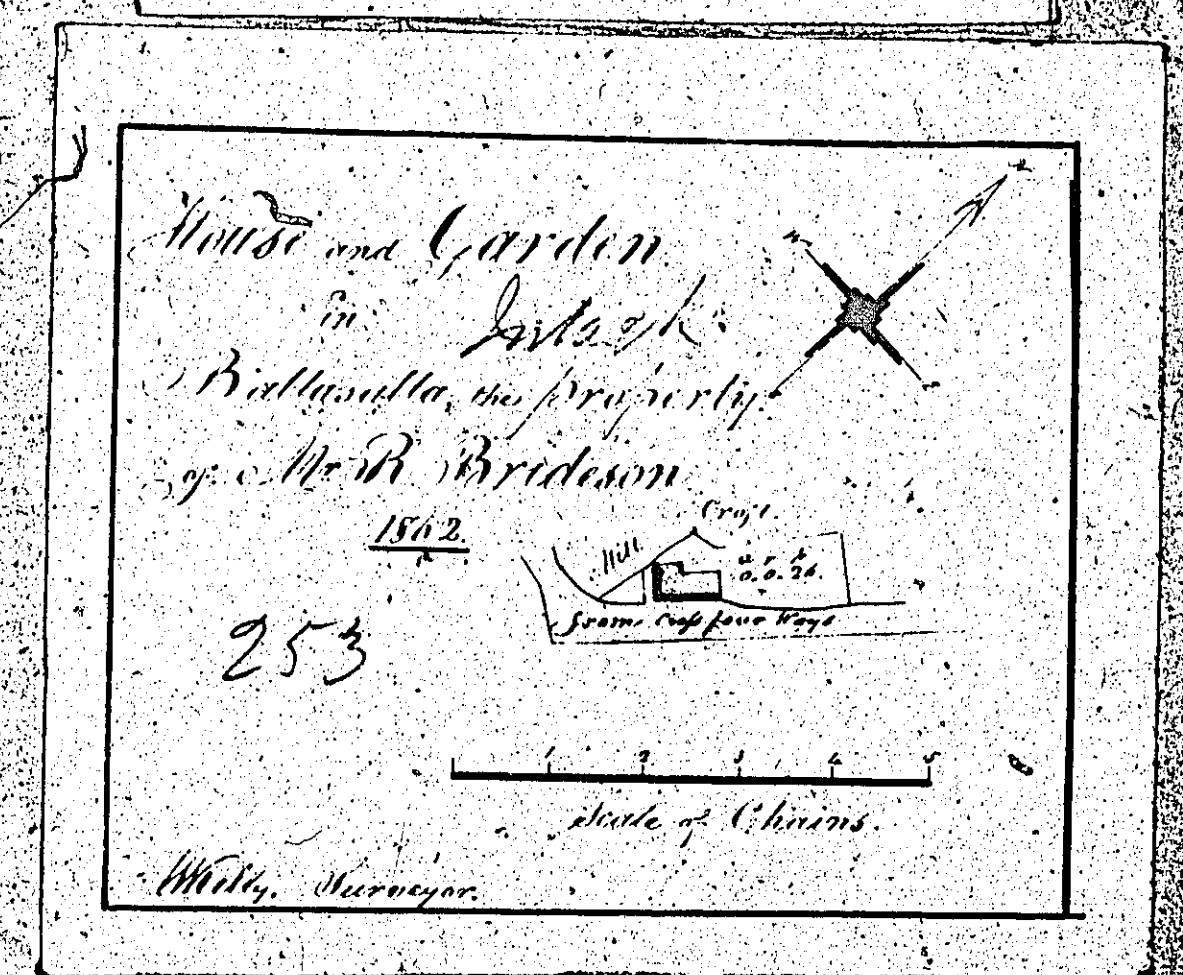 House and Garden
in Intack
Ballasalla, the property
of Mr R Brideson
1862.
Croft.
Mill
a. r. p.
0. 0. 26.
from Cross four Ways
253
1 2 3 4 5
Scale of Chains.
Surveyor.